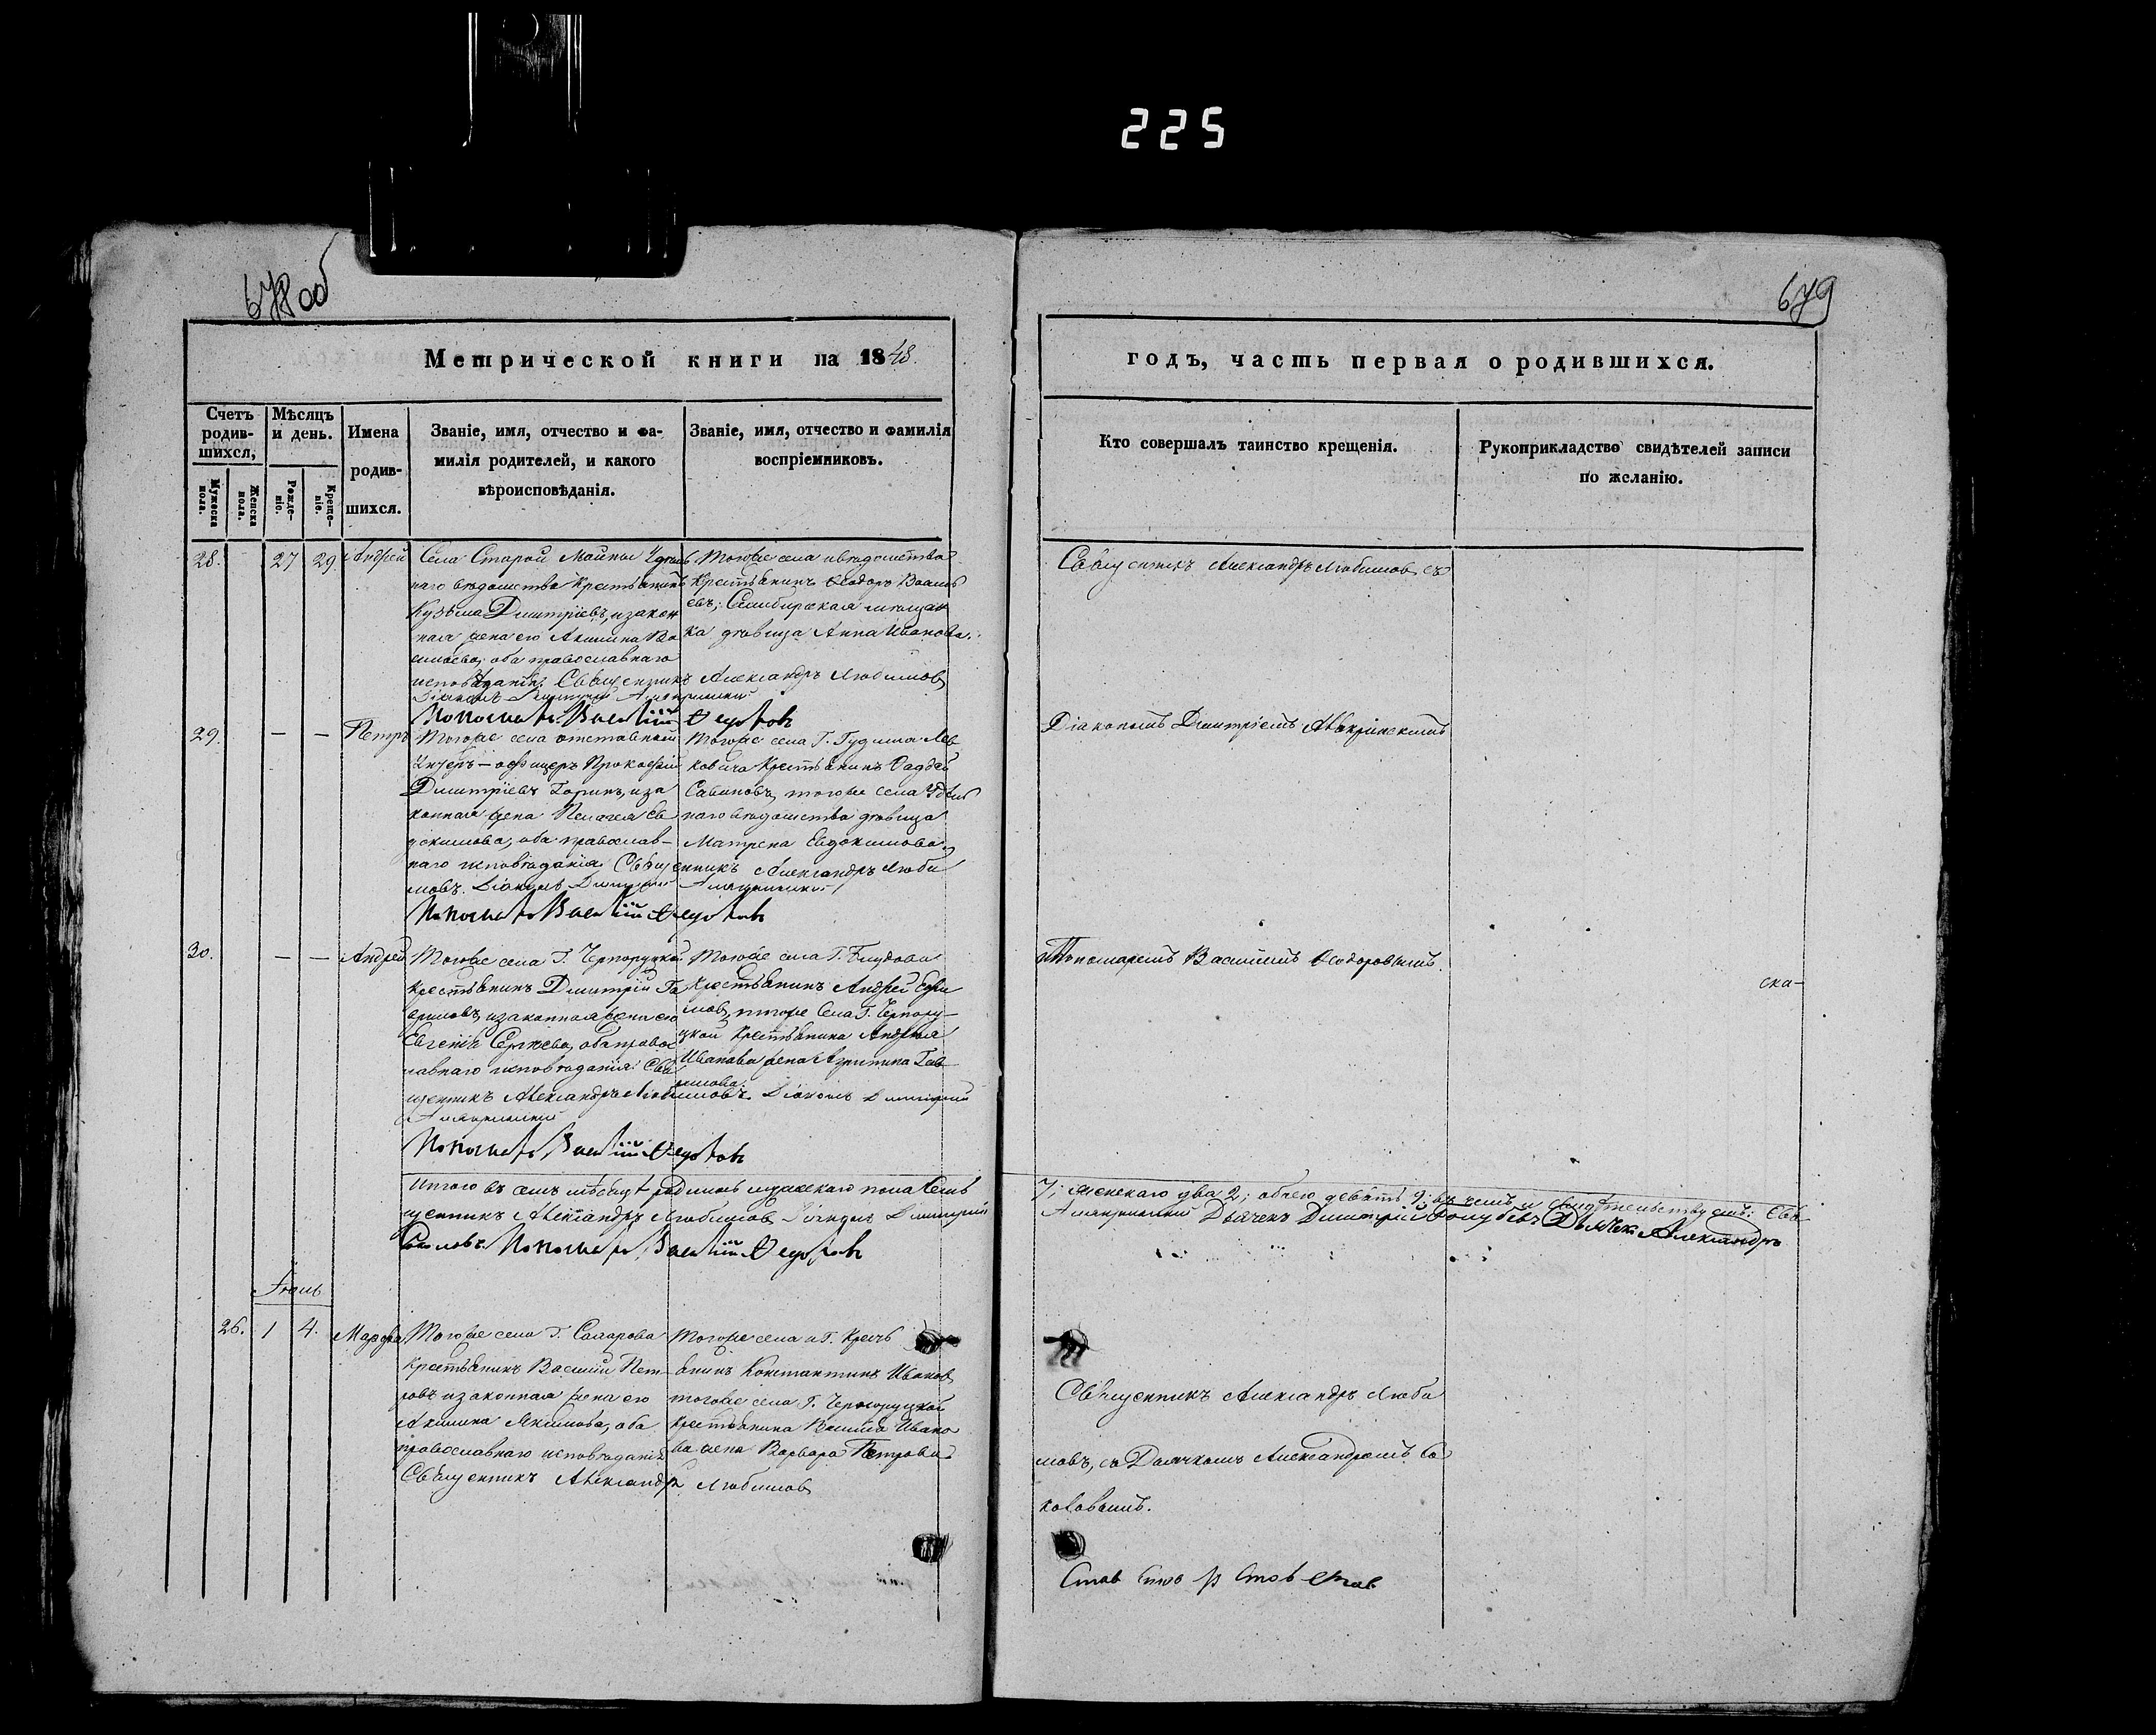 225
678 об
679
Метрической книги на 1848.
годъ, часть первая о родившихся.
Счетъ родив-шихся,
Мужеска пола.
Женска пола.
Мѣсяцъ и день.
Рожде-ніе.
Креще-ніе.
Имена родив-шихся.
Званіе, имя, отчество и фа-
милія родителей, и какого
вѣроисповѣданія.
Званіе, имя, отчество и фамилія
воспріемниковъ.
Кто совершалъ таинство крещенія.
Рукоприкладство свидѣтелей записи
по желанію.
28. 27 29. Андрей
Села Старой Майны Удѣль
наго вѣдомства Крестьянинъ
Кузьма Димитріевъ, и закон
ная жена его Акилина Ва
сильева, оба православнаго
исповѣданія. Священникъ Александръ Любимовъ
Діаконъ Димитрій
Пономарь Василій Ѳедоровъ
Тогоже села и вѣдомства
Крестьянинъ Ѳеодоръ Василь
евъ; Симбирская мѣщан
ка дѣвица Анна Иванова.
Священникъ Александръ Любимовъ съ
29. — — Петръ
Тогоже села отставной
Унтеръ-офицеръ Прокофій
Димитріевъ Горинъ, и за
конная жена Пелагея Ев
докимова, оба православ-
наго исповѣданія. Священникъ Александръ Люби
мовъ. Діаконъ Димитрій
Пономарь Василій Ѳедоровъ
Тогоже села Г. Гудима Лев
ковича Крестьянинъ Фаддей
Савиновъ, тогоже села Удѣль
наго вѣдомства дѣвица
Матрена Евдокимова.
Діакономъ Димитріемъ
30. — — Андрей
Тогоже села Г. Черноруцкой
Крестьянинъ Димитрій Га
вриловъ, и законная жена его
Евгенія Сергѣева, оба право
славнаго исповѣданія. Свя
щенникъ Александръ Любимовъ. Діаконъ Димитрій
Пономарь Василій Ѳедоровъ
Тогоже села Г. Блудова
Крестьянинъ Андрей Ефи
мовъ, тогоже села Г. Черно­ру-
цкой Крестьянина Андрея
Иванова жена Агрипина Гав
рилова.
Пономаремъ Василіемъ Ѳеодоровымъ.
ска-
Итого въ семъ мѣсяцѣ родилось мужескаго пола семь
7; женскаго два 2; обоего девять 9; въ чемъ и свидѣтельствуемъ: Свя
щенникъ Александръ Любимовъ Діаконъ Димитрій
Дьячекъ Димитрій Голубевъ Дьячекъ Александръ
Соколовъ. Пономарь Василій Ѳедоровъ
Іюнь
26. 1 4. Марфа
Тогоже села Г.
Крестьянинъ Василій Пет
ровъ и законная жена его
Акилина Якимова, оба
православнаго исповѣданія
Священникъ Александръ Любимовъ
Тогоже села и Г. Кресть
янинъ Константинъ Ивановъ
тогоже села Г. Черноруцкой
Крестьянина Василья Ивано
ва жена Варвара Петрова
Священникъ Александръ Люби
мовъ, съ Дьячкомъ Александромъ Со
коловымъ.